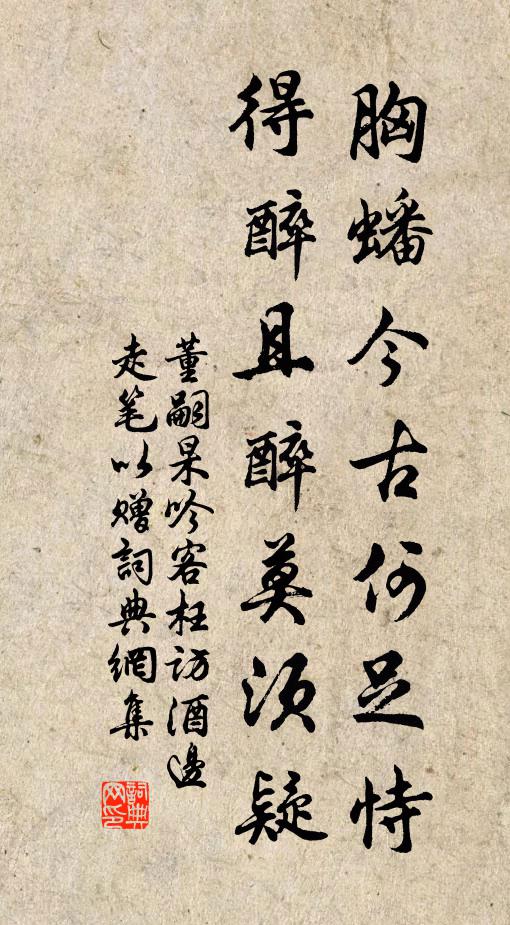 胸蟠今古何足恃
得醉且醉莫須疑
董嗣杲吟客枉访酒邊
走笔以赠詞典網集
詞典
网印